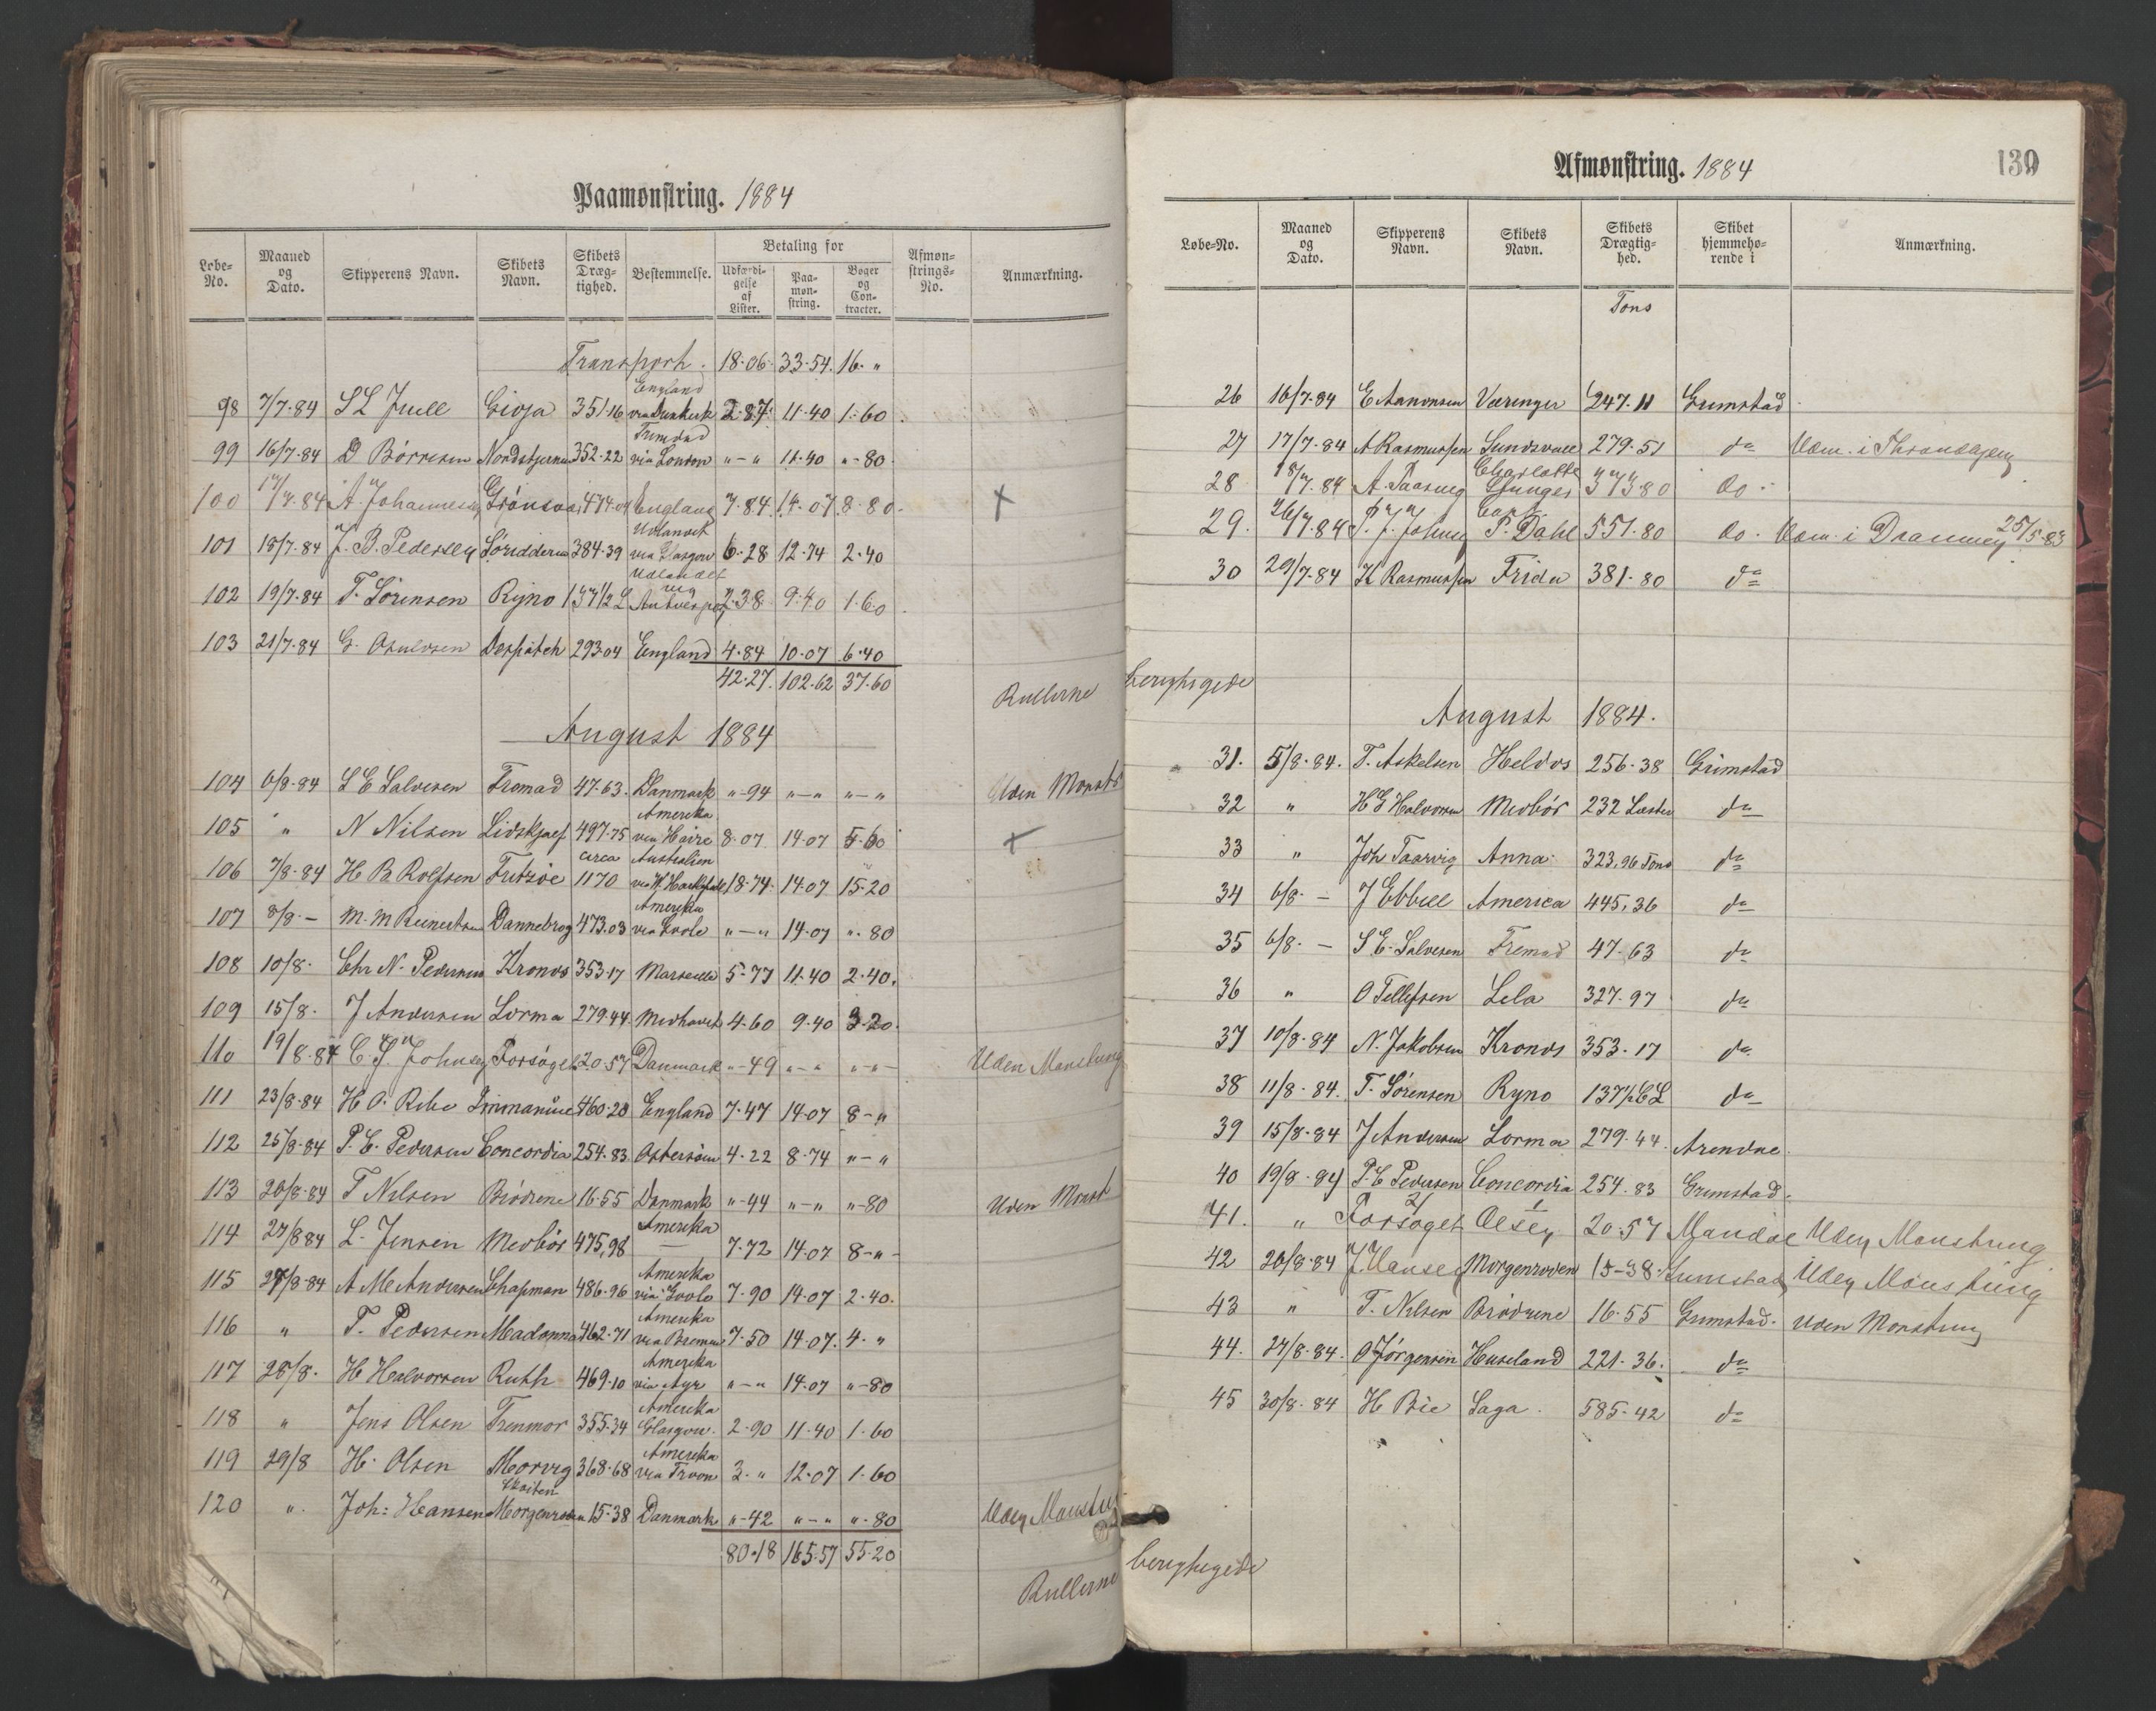 Paamønstring. 1884
Løbe-No. Maaned og Dato. Skipperens Navn. Skibets Navn. Skibets Dræg-tighed. Bestemmelse. Betaling for Udfærdi-gelse af Lister. Paa-møn-string. Bøger og Con-tracter. Afmøn-strings-No. Anmærkning.
Transport. 18.06. 33.54. 16. "
98 7/7.84 S L Juell Gioja 351.16 England via Dunkerk 2.87. 11.40 1.60
99 16/7.84 D Börresen Nordstjernen 352.22 via London "-" 11.40 "-80
100 17/7.84 A. Johannesen 474.04 England 7.84. 14.07 8.80 +
101 18/7.84 J. B. Pedersen 384.39 Udlandet via Glasgow 6.28 12.74 2.40
102 19/7.84 T. Sörensen Ryno 137 1/2 CL Udlandet via Antverpen 2.38 9.40 1.60
103 21/7.84 G. Osuldsen Despatch 293.04 England 4.84 10.07 6.40
42.27. 102.62 37.60
Rullerne
August 1884
104 6/8.84 S E Salvesen Fremad 47.63. Danmark "-94 "-" "-" Uden Monstr
105 " N Nilsen Lidskjalf 497.75 Amerika via Havre 8.07 14.07 5.60 +
106 7/8.84 H B Rolfsen Fritzöe circa 1170 Australien 18.74. 14.07 15.20
107 8/8 - M. M Reinertsen Dannebrog 473.03 Amerika via Goole "-" 14.07 ". 80
108 10/8. Chr N. Pedersen Kronos 353.17 Marseille 5.77 11.40 2.40.
109 15/8. J Andersen Lorma 279.44. Medhavet 4.60 9.40 3.20.
110 19/8.84 C. S. Johnsen Forsøget 20.57 Danmark "-49 "-" "-" Uden Monstring
111 23/8.84 H O. Ribe Immanuel 460.20 England 7.47 14.07 8-"
112 25/8.84 P. C. Pedersen Concordia 254.83 Østersöen 4.22 8.74 "-"
113 26/8.84 T Nilsen Brödrene 16.55 Danmark "-44 "-" "-80 Uden Monst
114 27/8 84 L. Jensen Medbör 475,98 Amerika - 7.72 14.07 8-"-
115 27/8.84 A M Andersen Chapman 486.96 Amerika via Goole 7.90 14.07 2.40.
116 " T. Pedersen Madonna 462.71 Amerika via Bremen 7.50 14.07. 4. "
117 28/8. H Halvorsen Ruth 469.10 Amerika via Ayr "-" 14.07 "-80
118 " Jens Olsen Trenmor 355.34 Amerika Glasgow. 2.90 11.40 1.60
119 29/8 H. Olsen Morvig 368.68 Amerika via Troon 3. " 12.07 1.60
120 ". Joh: Hansen Skøiten Morgenroden 15.38 Danmark "-42 "-" ".80 Uden Monstr
80.18 165.57 55.20
Rullerne
Afmønstring. 1884 139
Løbe-No. Maaned og Dato. Skipperens Navn. Skibets Navn. Skibets Drægtig-hed. Skibet hjemmehø-rende i Anmærkning.
Tons
26 16/7.84 E Aanonsen Væringer 247.11 Grimstad
27 17/7.84 A Rasmussen Sundsvall 279.51 do
28 18/7.84 A. Taarvig Charlotte 373.80 do.
29. 26/7.84 P. J. Johnsen P. Dahl 551.80 do. Udm. i Drammen 25/5.83
30 29/7.84 K Rasmussen Frida 381.80 do
berigtigede
August 1884.
31. 5/8.84. T. Askelsen Heldos 256.38 Grimstad
32 " H G Halvorsen Medbör 232 Læster do
33 " Joh Taarvig Anna 323,96 Tons do
34 6/8. - J Ebbell America 445,36 do
35 6/8. - S E. Salvesen Fremad 47.63 do
36 " O Tellefsen Lela 327.97 do
37 10/8.84 N. Jakobsen Kronos 353.17 do
38 11/8.84. T. Sörensen Ryno 137 1/2 CL do
39 15/8.84 J Andersen Lorma 279.44. Arendal
40 19/8.84 P. C Pedersen Concordia 254.83 Grimstad.
41. " 2/ Forsøget 1/ Olsen 20.57 Mandal Uden Monstring
42 26/8.84 J. Hansen Morgenroden 15-38. Grimstad Uden Mönstring
43 " T. Nilsen Brödrene 16.55 Grimstad. Uden Monstring
44. 27/8.84. O Jörgensen Huseland 221.36. do
45 30/8.84 H Bie Saga. 585.42 do
berigtigede